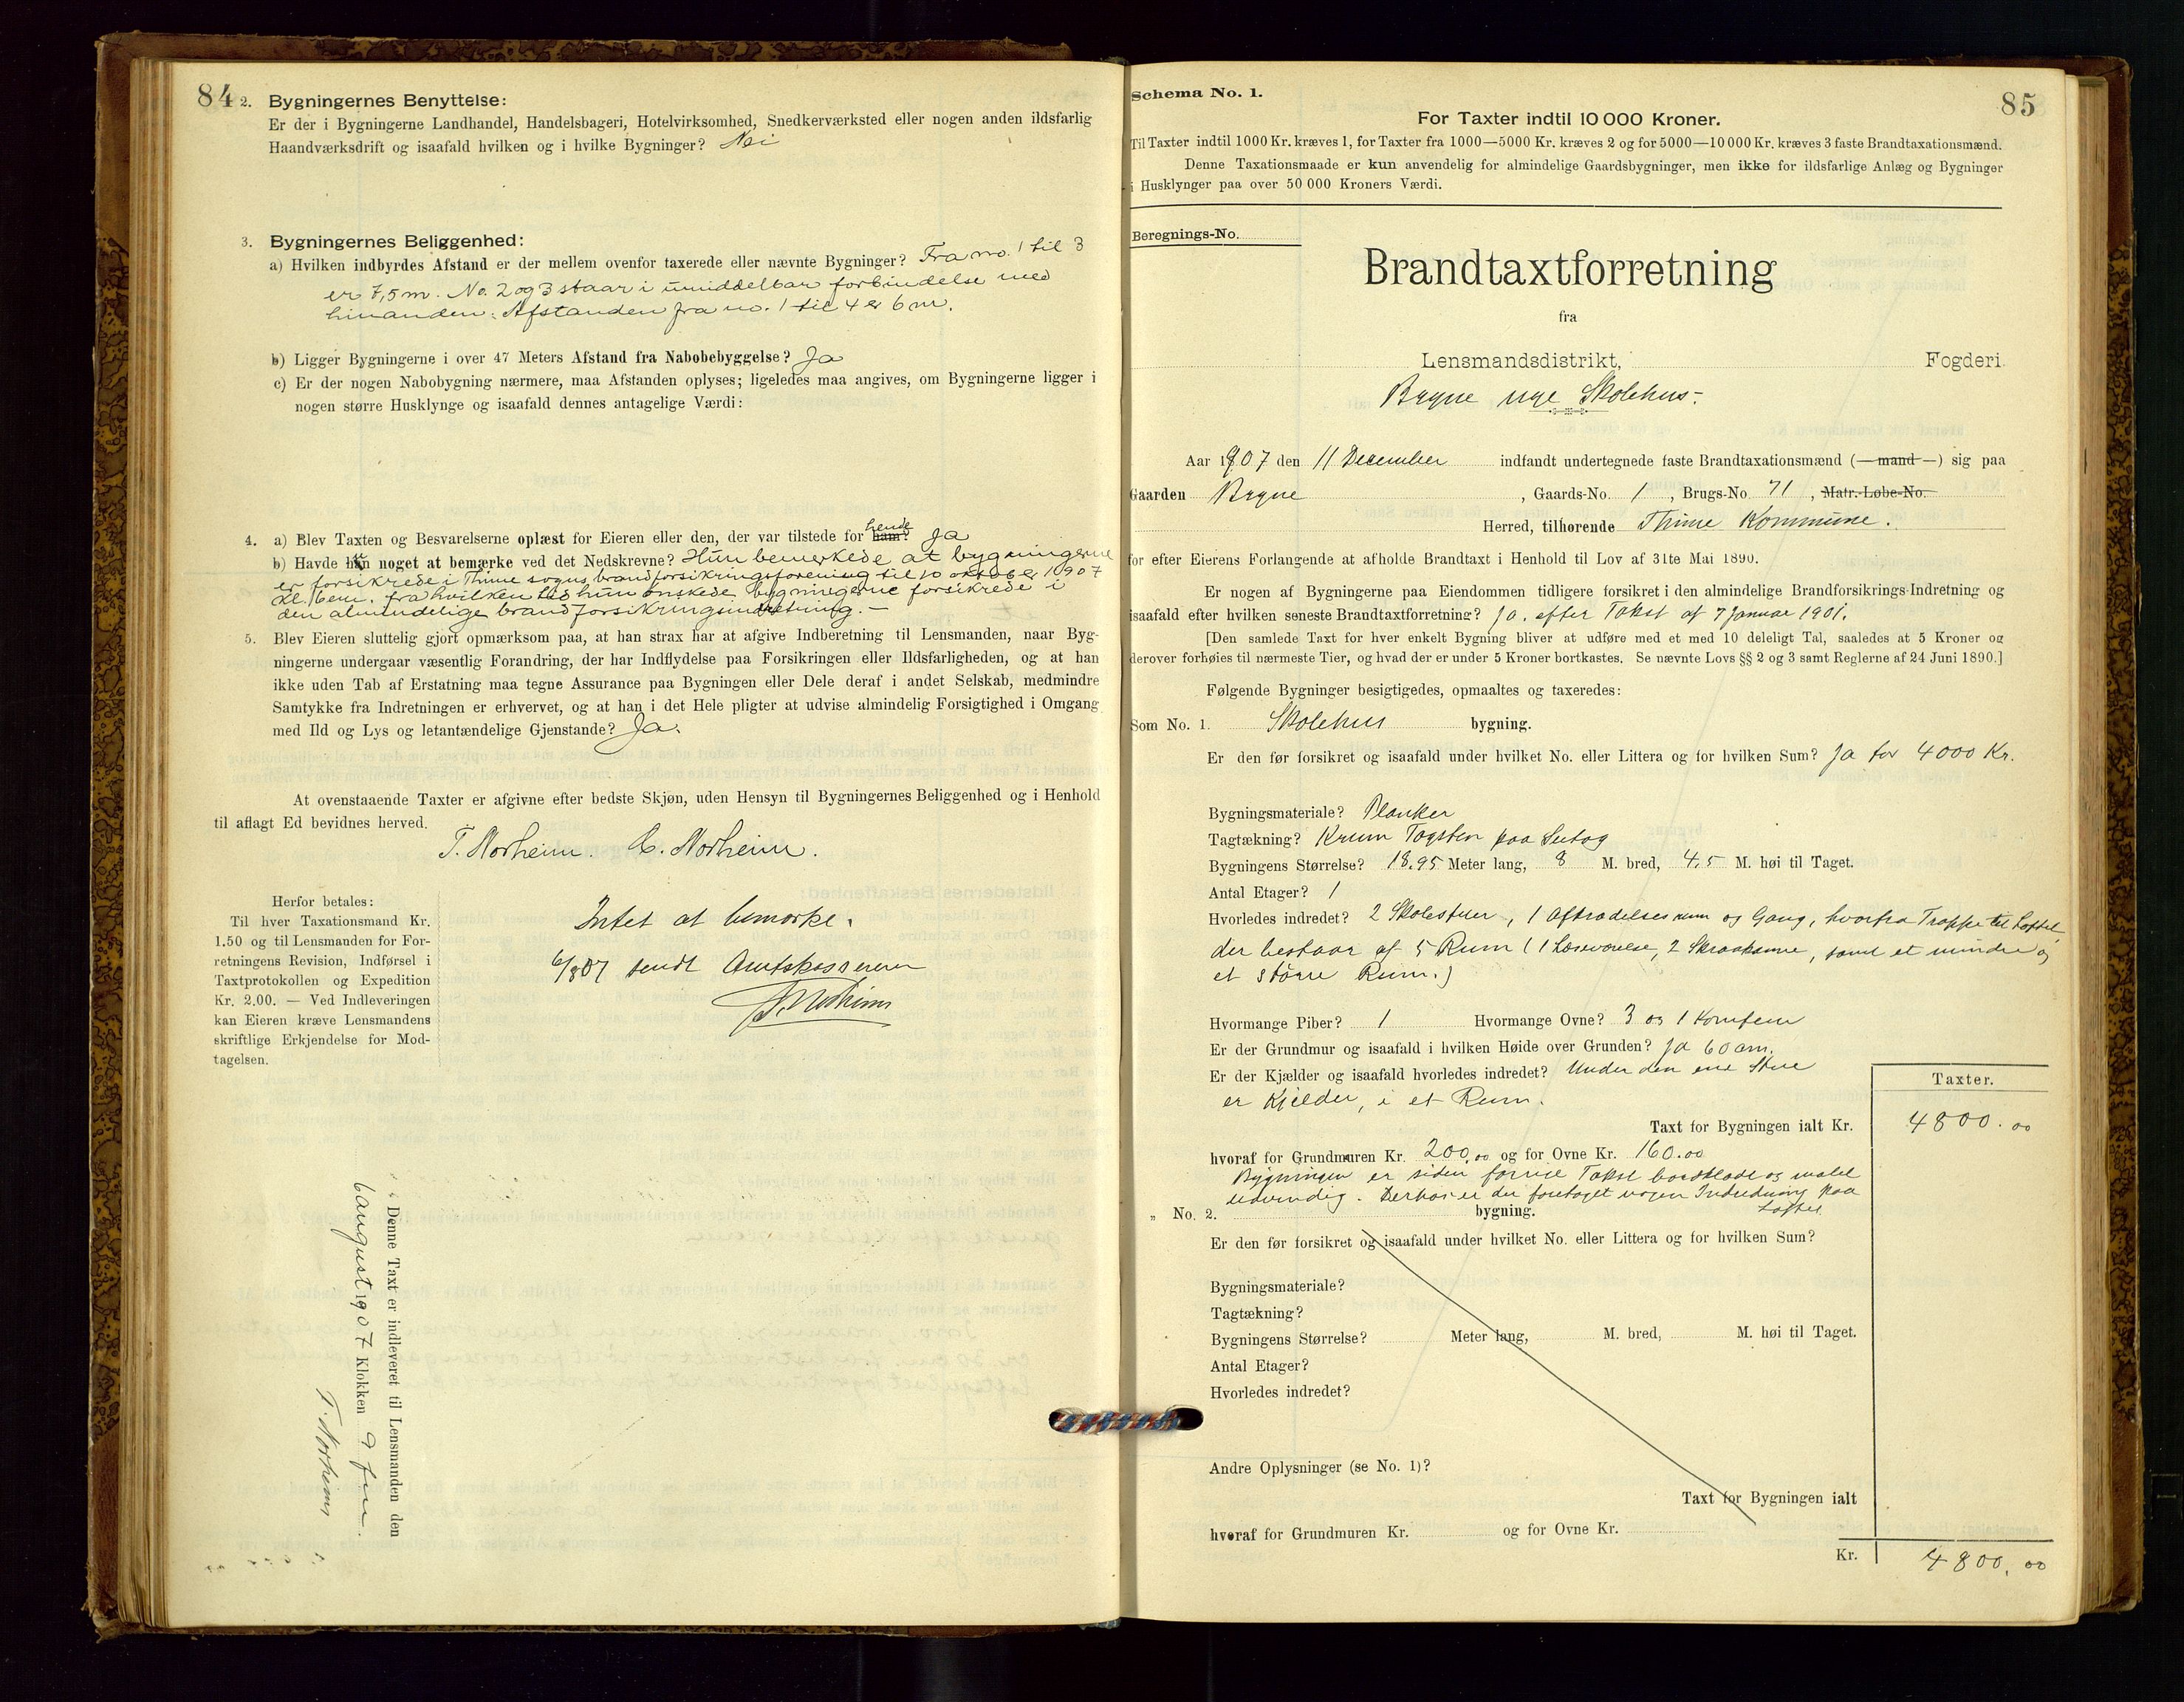 84
2. Bygningernes Benyttelse:
Er der i Bygningerne Landhandel, Handelsbageri, Hotelvirksomhed, Snedkerværksted eller nogen anden ildsfarlig
Haandværksdrift og isaafald hvilken og i hvilke Bygninger? Nei
3. Bygningernes Beliggenhed:
a) Hvilken indbyrdes Afstand er der mellem ovenfor taxerede eller nævnte Bygninger? Fra no. 1 til 3
er 7,5 m. No. 2 og 3 staar i umiddelbar forbindelse med
hinanden. Afstanden fra no. 1 til 4 er 6 m.
b) Ligger Bygningerne i over 47 Meters Afstand fra Nabobebyggelse? Ja
c) Er der nogen Nabobygning nærmere, maa Afstanden oplyses; ligeledes maa angives, om Bygningerne ligger i
nogen større Husklynge og isaafald dennes antagelige Værdi:
4. a) Blev Taxten og Besvarelserne oplæst for Eieren eller den, der var tilstede for ham? hende Ja
b) Havde hun noget at bemærke ved det Nedskrevne? Hun bemerkede at bygningerne
er forsikrede i Thime sogns brandforsikringsforening til 10 oktober 1907
kl. 6 em. fra hvilken tid hun ønskede bygningerne forsikrede i
den almindelige brandforsikringsindretning. -
5. Blev Eieren sluttelig gjort opmærksom paa, at han strax har at afgive Indberetning til Lensmanden, naar Byg-
ningerne undergaar væsentlig Forandring, der har Indflydelse paa Forsikringen eller Ildsfarligheden, og at han
ikke uden Tab af Erstatning maa tegne Assurance paa Bygningen eller Dele deraf i andet Selskab, medmindre
Samtykke fra Indretningen er erhvervet, og at han i det Hele pligter at udvise almindelig Forsigtighed i Omgang
med Ild og Lys og letantændelige Gjenstande? Ja.
At ovenstaaende Taxter er afgivne efter bedste Skjøn, uden Hensyn til Bygningernes Beliggenhed og i Henhold
til aflagt Ed bevidnes herved.
T. Norheim. C. Norheim.
Herfor betales:
Til hver Taxationsmand Kr.
1.50 og til Lensmanden for For-
retningens Revision, Indførsel i
Taxtprotokollen og Expedition
Kr. 2.00. — Ved Indleveringen
kan Eieren kræve Lensmandens
skriftlige Erkjendelse for Mod-
tagelsen.
Intet at bemærke.
6/8 07 sendt Amtskassereren
T. Norheim
Denne Taxt er indleveret til Lensmanden den
6 august 1907 Klokken 9 fm.
T. Norheim
85
Schema No. 1.
For Taxter indtil 10 000 Kroner.
Til Taxter indtil 1000 Kr. kræves 1, for Taxter fra 1000—5000 Kr. kræves 2 og for 5000—10 000 Kr. kræves 3 faste Brandtaxationsmænd.
Denne Taxationsmaade er kun anvendelig for almindelige Gaardsbygninger, men ikke for ildsfarlige Anlæg og Bygninger
i Husklynger paa over 50 000 Kroners Værdi.
Beregnings-No.
Brandtaxtforretning
fra
Lensmandsdistrikt, Fogderi.
Bryne nye Skolehus.
Aar 1907 den 11 December indfandt undertegnede faste Brandtaxationsmænd (— mand —) sig paa
Gaarden Bryne, Gaards-No. 1, Brugs-No. 71, Matr.-Løbe-No.
Herred, tilhørende Thime Kommune.
for efter Eierens Forlangende at afholde Brandtaxt i Henhold til Lov af 31te Mai 1890.
Er nogen af Bygningerne paa Eiendommen tidligere forsikret i den almindelige Brandforsikrings-Indretning og
isaafald efter hvilken seneste Brandtaxtforretning? Ja. efter Takst af 7 Januar 1901.
[Den samlede Taxt for hver enkelt Bygning bliver at udføre med et med 10 deleligt Tal, saaledes at 5 Kroner og
derover forhøies til nærmeste Tier, og hvad der er under 5 Kroner bortkastes. Se nævnte Lovs §§ 2 og 3 samt Reglerne af 24 Juni 1890.]
Følgende Bygninger besigtigedes, opmaaltes og taxeredes:
Som No. 1. Skolehus bygning.
Er den før forsikret og isaafald under hvilket No. eller Littera og for hvilken Sum? Ja for 4000 Kr.
Bygningsmateriale? Planker
Tagtækning? Krum Tagsten paa Sutag
Bygningens Størrelse? 18.95 Meter lang, 8 M. bred, 4,5 M. høi til Taget.
Antal Etager? 1
Hvorledes indredet? 2 Skolestuer, 1 Aftrædelsesrum og Gang, hvorfra Trappe til Loftet,
der bestaar af 5 Rum (1 Læseværelse, 2 Skraakamre, samt et mindre og
et større Rum.)
Hvormange Piber? 1 Hvormange Ovne? 3 og 1 Komfur
Er der Grundmur og isaafald i hvilken Høide over Grunden? Ja 60 cm.
Er der Kjælder og isaafald hvorledes indredet? Under den ene Stue
er Kjelder, i et Rum.
Taxter.
Taxt for Bygningen ialt Kr. 4800.00
hvoraf for Grundmuren Kr. 200.00 og for Ovne Kr. 160.00
Bygningen er siden forrige Takst bordklædt og malet
udvendig. Derhos er der foretaget nogen Indredning paa
Loftet.
„ No. 2. bygning.
Er den før forsikret og isaafald under hvilket No. eller Littera og for hvilken Sum?
Bygningsmateriale?
Tagtækning?
Bygningens Størrelse? Meter lang, M. bred, M. høi til Taget.
Antal Etager?
Hvorledes indredet?
Andre Oplysninger (se No. 1)?
Taxt for Bygningen ialt
hvoraf for Grundmuren Kr. og for Ovne Kr.
Kr. 4800,00